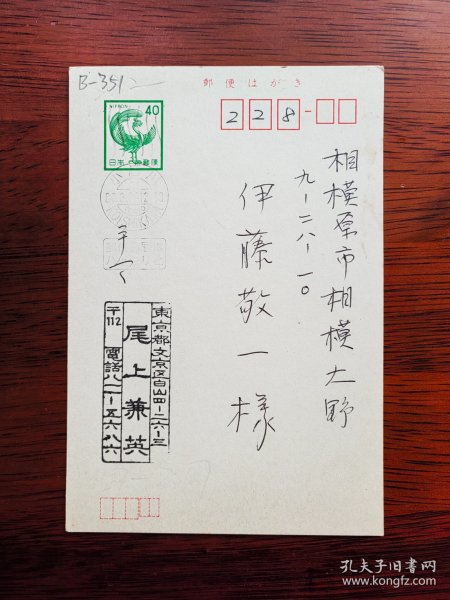 B-351
郵便はがき
NIPPON
40
日本郵便
228-
相模原市相模大野
九-二八-一〇
伊藤敬一様
東京都文京区白山四-二六-三
尾上兼英
〒112 電話八一一-五六八六
孔夫子旧书网
www.kongfz.com